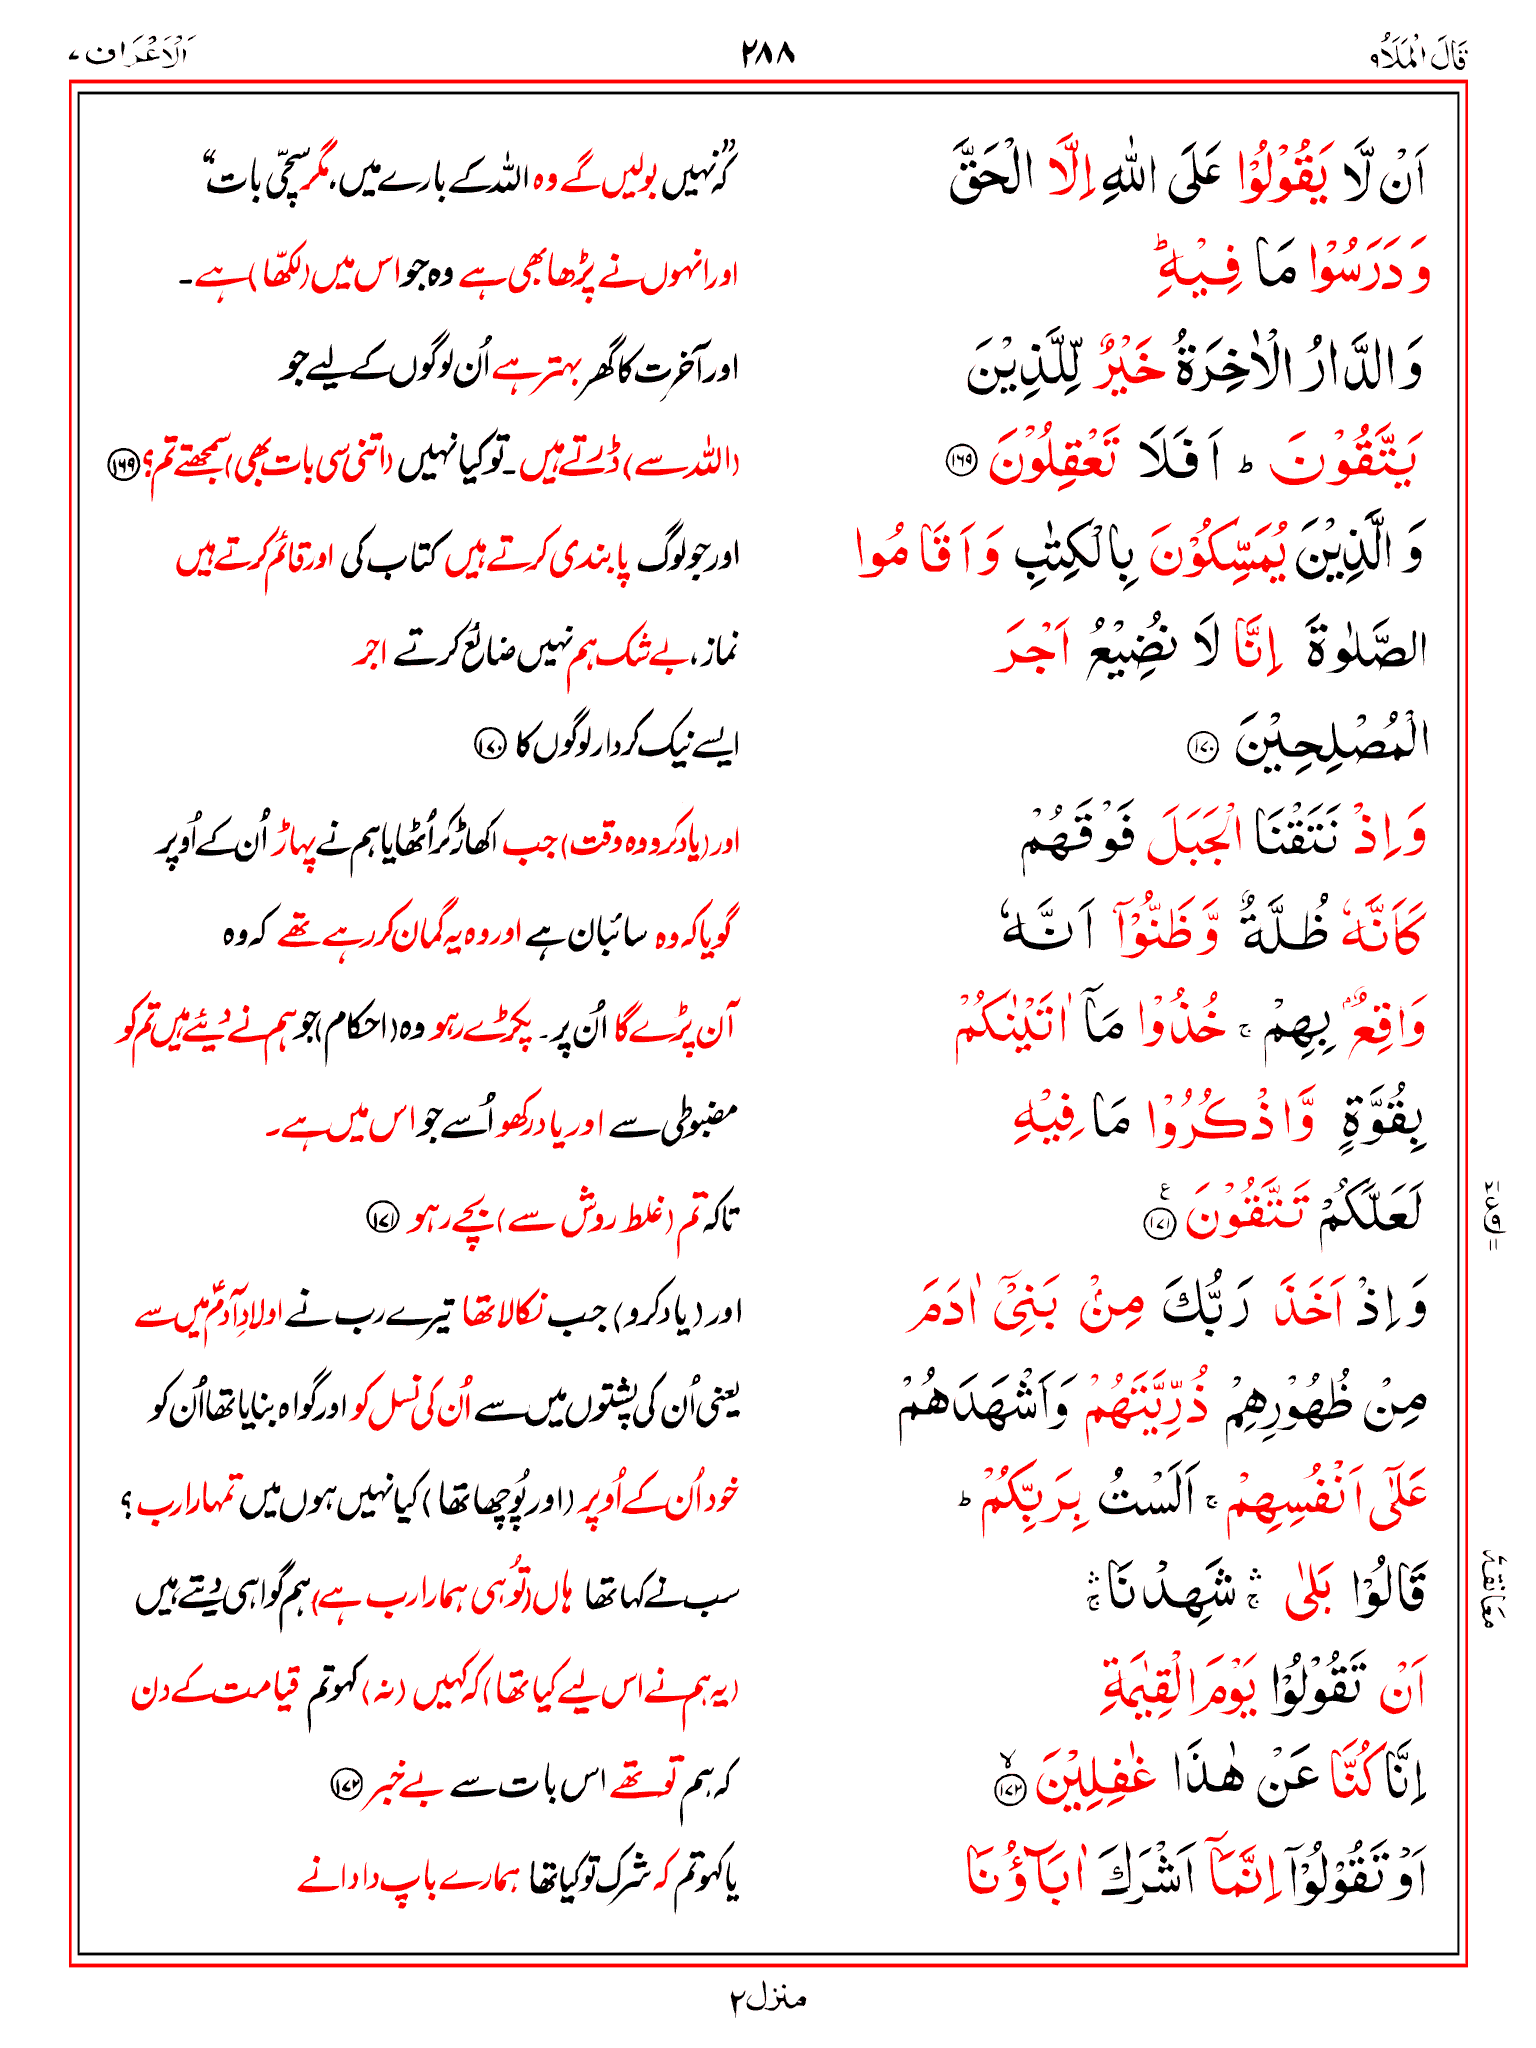 قَالَ الْمَلَاُ ۹ ۲۸۸ اَلْاَعْرَاف ۷
اَنْ لَّا يَقُوْلُوْا عَلَى اللّٰهِ اِلَّا الْحَقَّ کہ ”نہیں بولیں گے وہ اللہ کے بارے میں، مگر سچّی بات“
وَ دَرَسُوْا مَا فِيْهِ ؕ اور انہوں نے پڑھا بھی ہے وہ جو اس میں (لکھّا) ہے۔
وَ الدَّارُ الْاٰخِرَةُ خَيْرٌ لِّلَّذِيْنَ اور آخرت کا گھر بہتر ہے اُن لوگوں کے لیے جو
يَتَّقُوْنَ ؕ اَفَلَا تَعْقِلُوْنَ ۝۱۶۹ (اللہ سے) ڈرتے ہیں۔ تو کیا نہیں (اتنی سی بات بھی) سمجھتے تم؟ ۝۱۶۹
وَ الَّذِيْنَ يُمَسِّكُوْنَ بِالْكِتٰبِ وَ اَقَامُوا اور جو لوگ پابندی کرتے ہیں کتاب کی اور قائم کرتے ہیں
الصَّلٰوةَ اِنَّا لَا نُضِيْعُ اَجْرَ نماز، بے شک ہم نہیں ضائع کرتے اجر
الْمُصْلِحِيْنَ ۝۱۷۰ ایسے نیک کردار لوگوں کا ۝۱۷۰
وَ اِذْ نَتَقْنَا الْجَبَلَ فَوْقَهُمْ اور (یاد کرو وہ وقت) جب اکھاڑ کر اُٹھایا ہم نے پہاڑ اُن کے اُوپر
كَاَنَّهٗ ظُلَّةٌ وَّ ظَنُّوْۤا اَنَّهٗ گویا کہ وہ سائبان ہے اور وہ یہ گمان کر رہے تھے کہ وہ
وَاقِعٌۢ بِهِمْ ۚ خُذُوْا مَاۤ اٰتَيْنٰكُمْ آن پڑے گا اُن پر۔ پکڑے رہو وہ (احکام) جو ہم نے دیئے ہیں تم کو
بِقُوَّةٍ وَّ اذْكُرُوْا مَا فِيْهِ مضبوطی سے اور یاد رکھو اُسے جو اس میں ہے۔
لَعَلَّكُمْ تَتَّقُوْنَ ۝۱۷۱ ع تاکہ تم (غلط روش سے) بچے رہو ۝۱۷۱
وَ اِذْ اَخَذَ رَبُّكَ مِنْۢ بَنِيْۤ اٰدَمَ اور (یاد کرو) جب نکالا تھا تیرے رب نے اولادِ آدمؑ میں سے
مِنْ ظُهُوْرِهِمْ ذُرِّيَّتَهُمْ وَ اَشْهَدَهُمْ یعنی اُن کی پشتوں میں سے اُن کی نسل کو اور گواہ بنایا تھا اُن کو
عَلٰۤى اَنْفُسِهِمْ ۚ اَلَسْتُ بِرَبِّكُمْ ؕ خود اُن کے اُوپر (اور پُوچھا تھا) کیا نہیں ہوں میں تمہارا رب؟
قَالُوْا بَلٰى ۛۚ شَهِدْنَا ۛۚ سب نے کہا تھا ہاں (تُو ہی ہمارا رب ہے) ہم گواہی دیتے ہیں
معانقۃ
اَنْ تَقُوْلُوْا يَوْمَ الْقِيٰمَةِ (یہ ہم نے اس لیے کیا تھا) کہ کہیں (نہ) کہو تم قیامت کے دن
اِنَّا كُنَّا عَنْ هٰذَا غٰفِلِيْنَ ۝۱۷۲ ۙ کہ ہم تو تھے اس بات سے بے خبر ۝۱۷۲
اَوْ تَقُوْلُوْۤا اِنَّمَاۤ اَشْرَكَ اٰبَآؤُنَا یا کہو تم کہ شرک تو کیا تھا ہمارے باپ دادا نے
منزل ۲